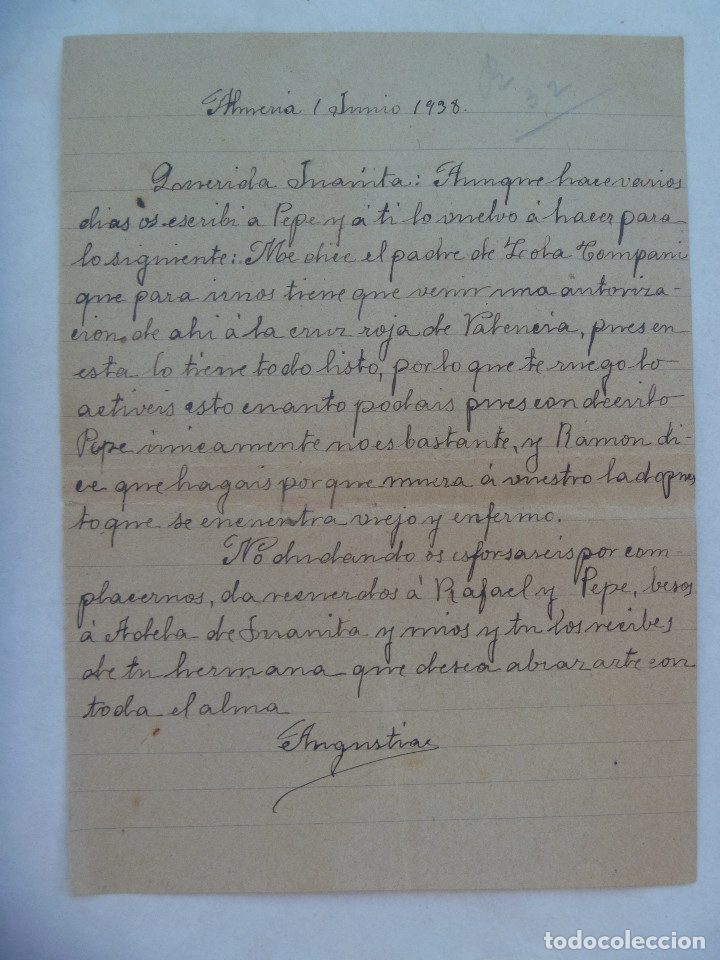 Almeria 1 Junio 1938.
32
Querida Juanita: Aunque hace varios
dias os escribi a Pepe y á ti lo vuelvo á hacer para
lo siguiente: Me dice el padre de Lola Compani
que para irnos tiene que venir una autoriza-
cion de ahi á la cruz roja de Valencia, pues en
esta lo tiene todo listo, por lo que te ruego lo
activeis esto cuanto podais pues con decirlo
Pepe unicamente no es bastante, y Ramon di-
ce que hagais porque muera á vuestro lado pues
to que se encuentra viejo y enfermo.
No dudando os esforsareis por com-
placernos, da recuerdos á Rafael y Pepe, besos
á Adela de Juanita y mios y tu los recibes
de tu hermana que desea abrazarte con
toda el alma
Angustias
todocoleccion
todocoleccion.net